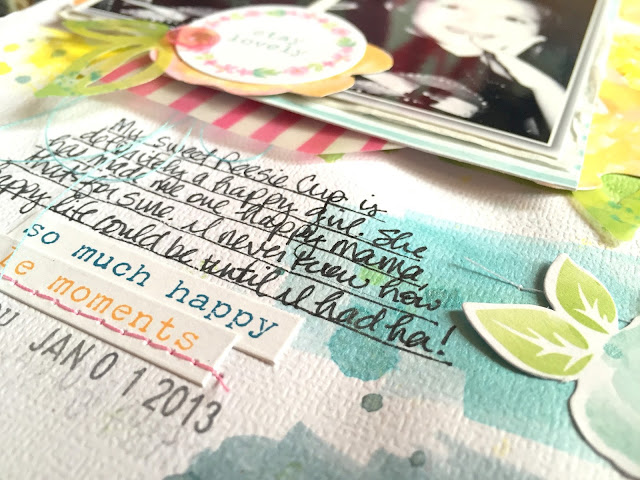 stay
lovely
My sweet Reesie Cup is
definitely a happy girl. She
has made me one happy mama,
that for sure. I never knew how
happy life could be until I had ha!
so much happy
le moments
JAN 01 2013